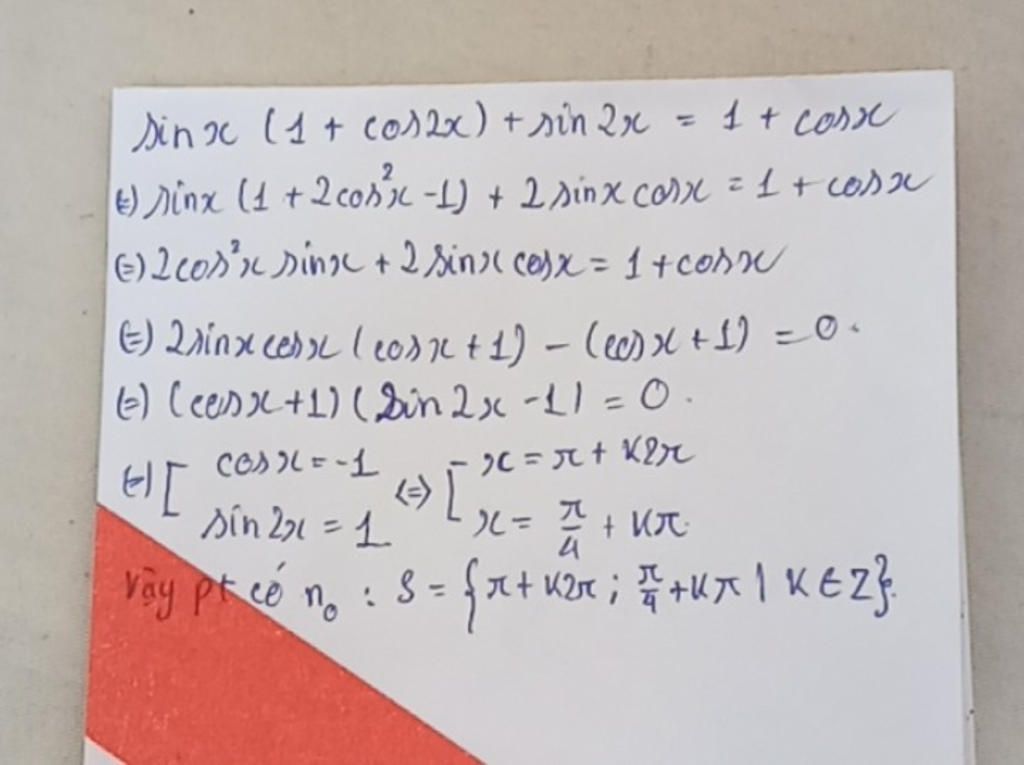 sin x (1 + cos2x) + sin 2x = 1 + cosx
(=) sinx (1 + 2cos²x -1) + 2 sinx cosx = 1 + cosx
(=) 2cos²x sinx + 2 sinx cosx = 1 + cosx
(=) 2sinx cosx (cosx + 1) - (cosx + 1) = 0.
(=) (cosx + 1) (sin 2x - 1) = 0.
(=) [ cosx = -1 <=> [ x = π + k2π
sin 2x = 1 x = π/4 + kπ.
Vậy pt có n₀ : S = {π + k2π ; π/4 + kπ | K ∈ Z}.